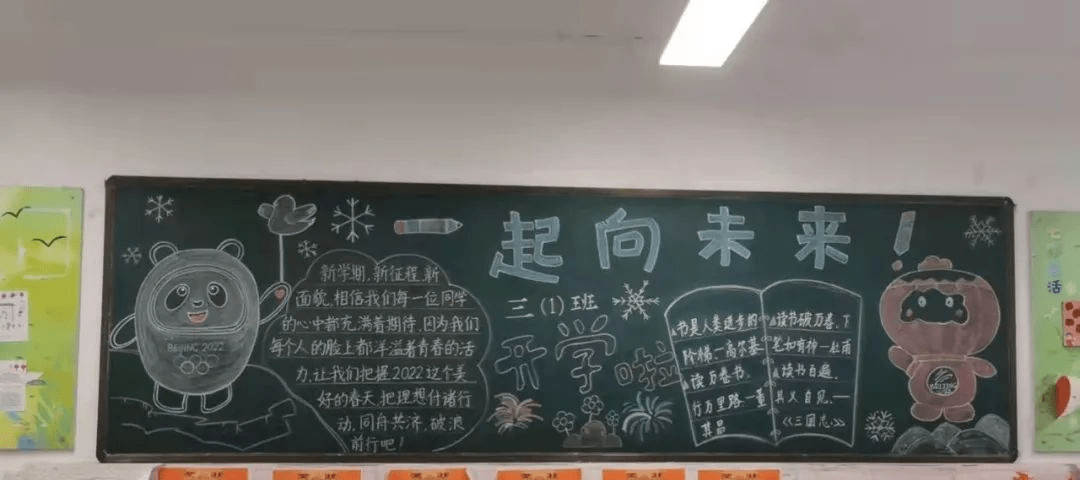 一起向未来!
三(1)班
开学啦
新学期,新征程,新
面貌,相信我们每一位同学
的心中都充满着期待,因为我们
每个人的脸上都洋溢着青春的活
力,让我们把握2022这个美
好的春天,把理想付诸行
动,同舟共济,破浪
前行吧!
BEIJING 2022
书是人类进步的
阶梯.—高尔基
读万卷书,
行万里路.—董
其昌
读书破万卷,下
笔如有神—杜甫
读书百遍,
其义自见.—
《三国志》
BEIJING
活